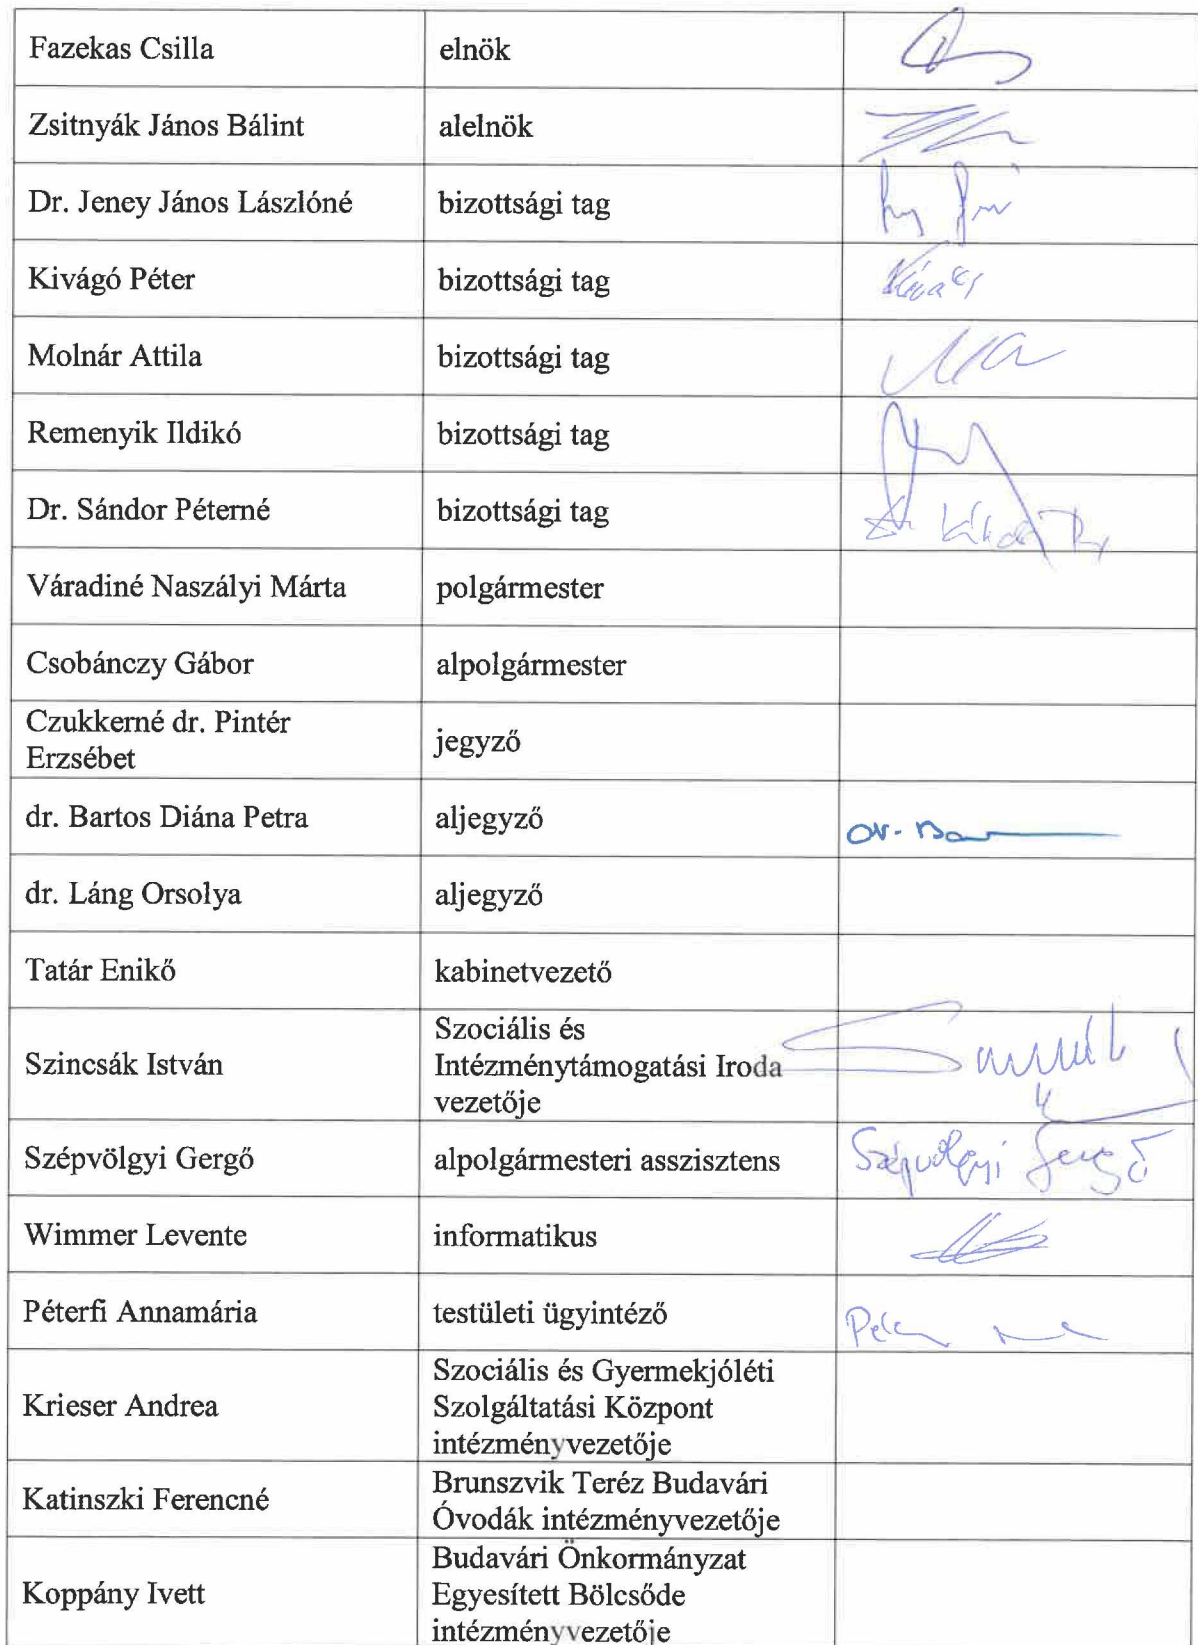 Fazekas Csilla elnök
Zsitnyák János Bálint alelnök
Dr. Jeney János Lászlóné bizottsági tag
Kivágó Péter bizottsági tag
Molnár Attila bizottsági tag
Remenyik Ildikó bizottsági tag
Dr. Sándor Péterné bizottsági tag
Váradiné Naszályi Márta polgármester
Csobánczy Gábor alpolgármester
Czukkerné dr. Pintér
Erzsébet
jegyző
dr. Bartos Diána Petra aljegyző
dr. Láng Orsolya aljegyző
Tatár Enikő kabinetvezető
Szincsák István
Szociális és
Intézménytámogatási Iroda
vezetője
Szépvölgyi Gergő alpolgármesteri asszisztens Szépvölgyi Gergő
Wimmer Levente informatikus
Péterfi Annamária testületi ügyintéző
Krieser Andrea
Szociális és Gyermekjóléti
Szolgáltatási Központ
intézményvezetője
Katinszki Ferencné
Brunszvik Teréz Budavári
Óvodák intézményvezetője
Koppány Ivett
Budavári Önkormányzat
Egyesített Bölcsőde
intézményvezetője